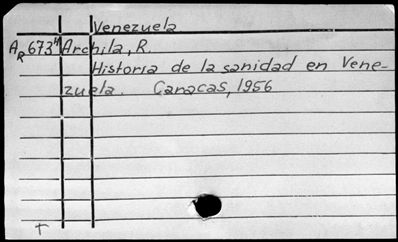 Venezuela
AR673H Archila, R.
Historia de la sanidad en Vene-
zuela. Caracas, 1956